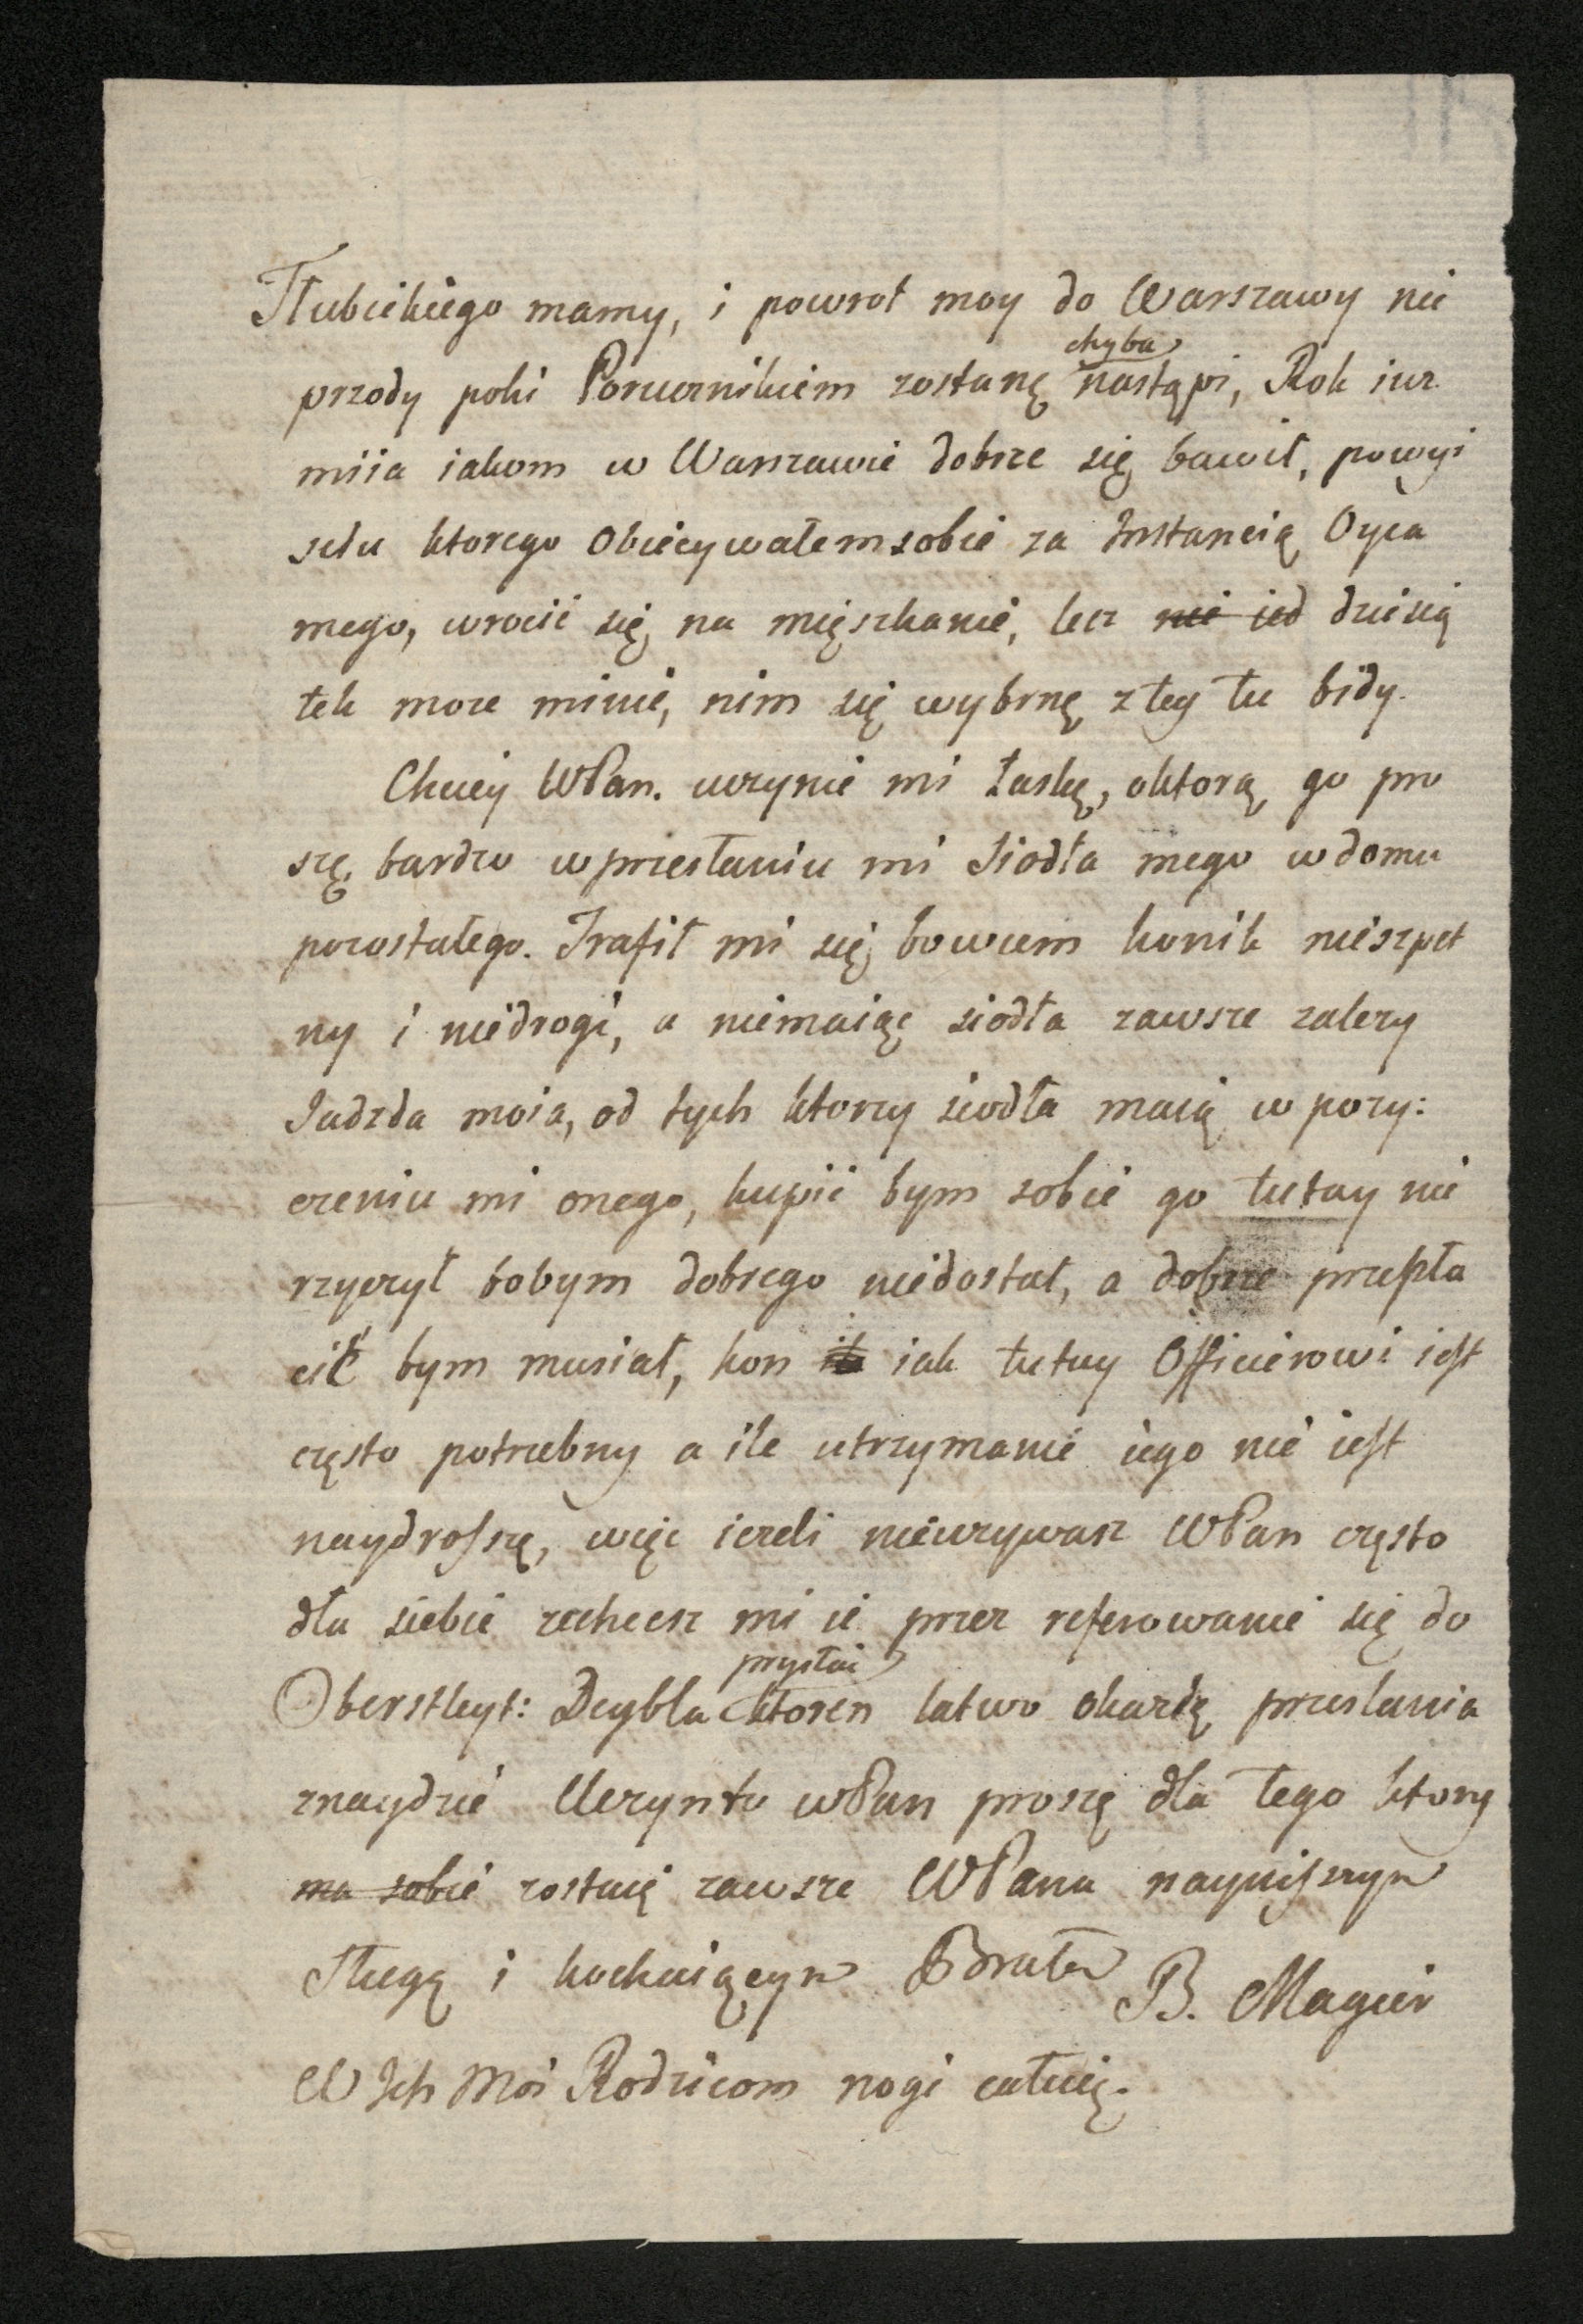 Słubickiego mamy, i powrot moy do Warszawy nie
przody poki Porucznikiem zostanę chyba nastąpi, Rok iuz
miia iakom w Warszawie dobrze się bawił, powyi
sciu ktorego Obiecywałem sobie za Instancią Oyca
mego, wrocić się na mięszkanie, lecz nie ied dziesią
tek moze minie, nim się wybrnę z tey tu bidy.
Chciey WPan. uczynić mi łaskę, o ktorą go pro
szę bardzo w przesłaniu mi Siodła mego w domu
pozostałego. Trafił mi się bowiem konik nieszpet
ny i niedrogi, a niemaiąc siodła zawsze zalezy
Jadzda moia, od tych ktorzy siodła maią w pozy:
czeniu mi onego, kupić bym sobie go tutay nie
rzyczył bobym dobrego niedostał, a dobrze przepła
cić bym musiał, kon iak tutay Officierowi iest
często potrzebny a ile utrzymanie iego nie iest
naydrossze, więc iezeli nieuzywasz WPan często
dla siebie zechcesz mi ie przez referowanie się do
Oberstleyt: Deybla przysłać ktoren łatwo okazię przesłania
znaydzie Uczyn to WPan proszę dla tego ktory
ma sobie zostaię zawsze WPana nayniższym
Sługą i kochaiącym Bratem B. Magier
W Ich Moś Rodzicom nogi całuię.